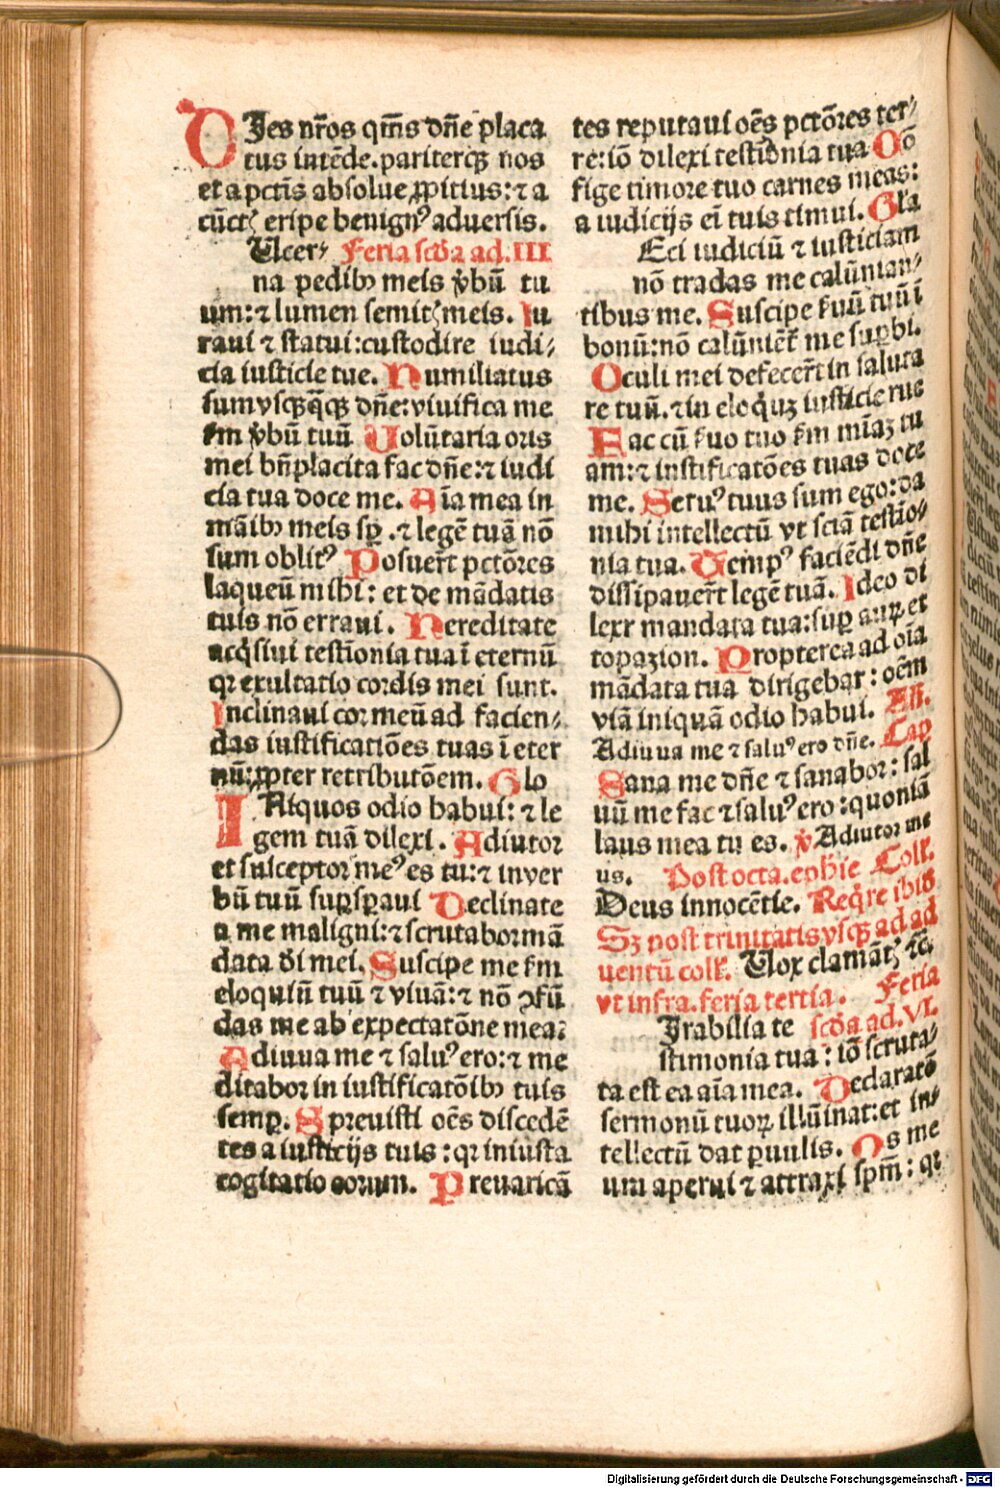 DJes nr̄os qm̄s dn̄e placa
tus intēde.pariterqꝫ nos
et a pctīs absolue ꝓpitius:⁊ a
cūctꝭ eripe benignꝰ aduersis.
Ulcer⁊ Feria scd̄a ad.III
na pedibꝰ meis v̄bū tu
um:⁊ lumen semitꝭ meis. Iu
raui ⁊ statui:custodire iudi⸗
cia iusticie tue. Humiliatus
sum vsqꝫq̄qꝫ dn̄e:viuifica me
km̄ v̄bū tuū Uolūtaria oris
mei bn̄placita fac dn̄e:⁊ iudi
cia tua doce me. Aīa mea in
māibꝰ meis sꝑ .⁊ legē tuā nō
sum oblitꝰ Posuer̄t pctōres
laqueū mihi: et de mādatis
tuis nō erraui. Hereditate
acq̇siui testīonia tua ī eternū
qꝛ exultatio cordis mei sunt.
Inclinaui cor meū ad facien⸗
das iustificatiōes tuas ī eter
nū:ꝓpter retributōem. Glo
INiquos odio habui: ⁊ le
gem tuā dilexi. Adiutor
et susceptor meꝰ es tu:⁊ in ver
bū tuū suꝑsperaui Declinate
a me maligni:⁊ scrutabor mā
data dī mei. Suscipe me km̄
eloquiū tuū ⁊ viuā:⁊ nō ꝯfū
das me ab expectatōne mea:
Adiuua me ⁊ saluꝰ ero:⁊ me
ditabor in iustificatōibꝰ tuis
semꝑ. Spreuisti oēs discedē
tes a iusticijs tuis :qꝛ iniusta
cogitatio eorum. Preuaricā
tes reputaui oēs pctōres ter⸗
re:iō dilexi testiōnia tua Cō
fige timore tuo carnes meas:
a iudicijs eī tuis timui. Gla
Eci iudiciū ⁊ iusticiam
nō tradas me calūnian⸗
tibus me. Suscipe ẜuū tuū ī
bonū:nō calūniēt me suꝑbi.
Oculi mei defecer̄t in saluta
re tuū.⁊ in eloq̇uꝫ iusticie tue
Fac cū ẜuo tuo km̄ mīaꝫ tu
am:⁊ iustificatōes tuas doce
me. Seruꝰ tuus sum ego:da
mihi intellectū vt sciā testīo⸗
nia tua. Tempꝰ faciēdi dn̄e
dissipauer̄t legē tuā. Ideo di
lexi mandata tua:suꝑ auꝝ et
topazion. Propterea ad oīa
mādata tua dirigebar: oēm
viā iniquā odio habui. An̄.
Adiuua me ⁊ saluꝰ ero dn̄e. Cap
Sana me dn̄e ⁊ sanabor: sal
uū me fac ⁊ saluꝰ ero:quoniā
laus mea tu es. v̄ Adiutor me
us. Post octa.ephīe Coll.
Deus innocētie. Req̇re ibid
Sꝫ post trinitatis vsqꝫ ad ad
uentū coll. Uox clamātꝭ ⁊c̄.
vt infra.feria tertia. Feria
Irabilia te scd̄a ad.VI.
stimonia tua: iō scruta⸗
ta est ea aīa mea. Declaratō
sermonū tuoꝝ illūinat:et in⸗
tellectū dat ꝑuulis. Os me
um aperui ⁊ attraxi spm̄: qꝛ